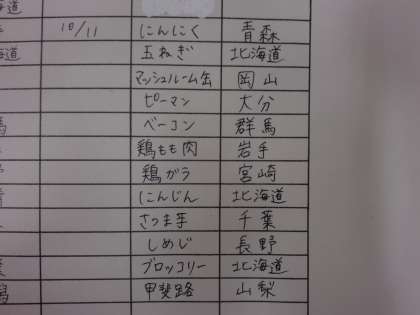 道
10/11 にんにく 青森
道 玉ねぎ 北海道
マッシュルーム缶 岡山
ピーマン 大分
ベーコン 群馬
鶏もも肉 岩手
鶏ガラ 宮崎
にんじん 北海道
さつま芋 千葉
しめじ 長野
ブロッコリー 北海道
甲斐路 山梨